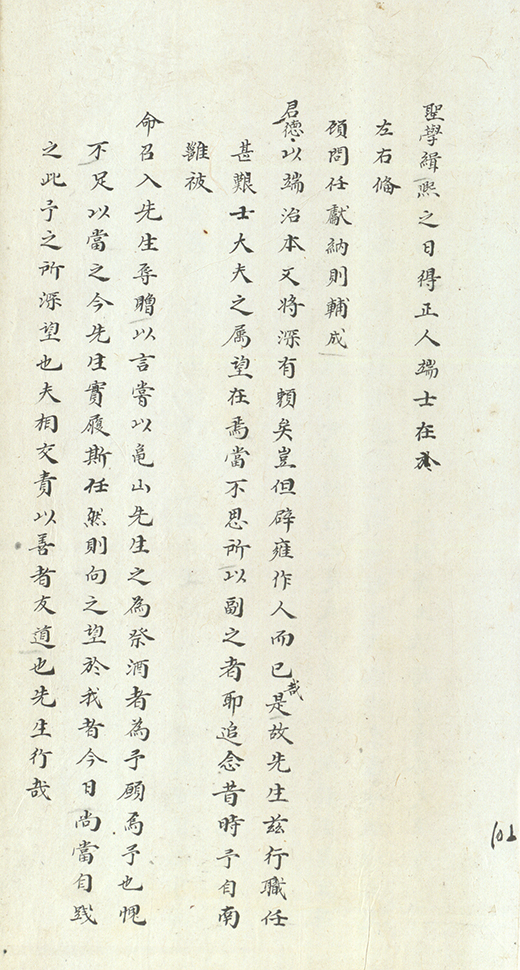 聖學緝熙之日得正人端士在於
左右備
顧問任獻納則輔成
君德以端治本又將深有賴矣豈但辟雍作人而已哉是故先生茲行職任
甚艱士大夫之属望在焉當不思所以副之者耶追念昔時予自南
雝被
命召入先生辱贈以言嘗以龜山先生之為祭酒者為予願焉予也愧
不足以當之今先生實履斯任然則向之望於我者今日尚當自踐
之此予之所深望也夫相交責以善者友道也先生行哉
102